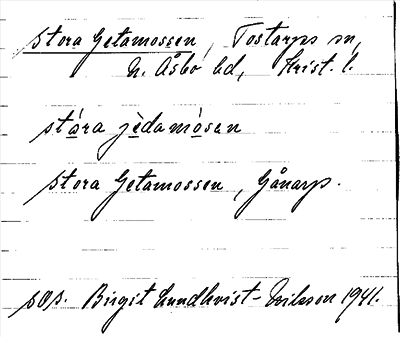 Stora Getamossen, Tostarps sn,
N. Åsbo hd, Krist. l.
stára jèdamòsan
Stora Getamossen, Gånarp.
sos. Birgit Lundkvist-Nilsson 1941.